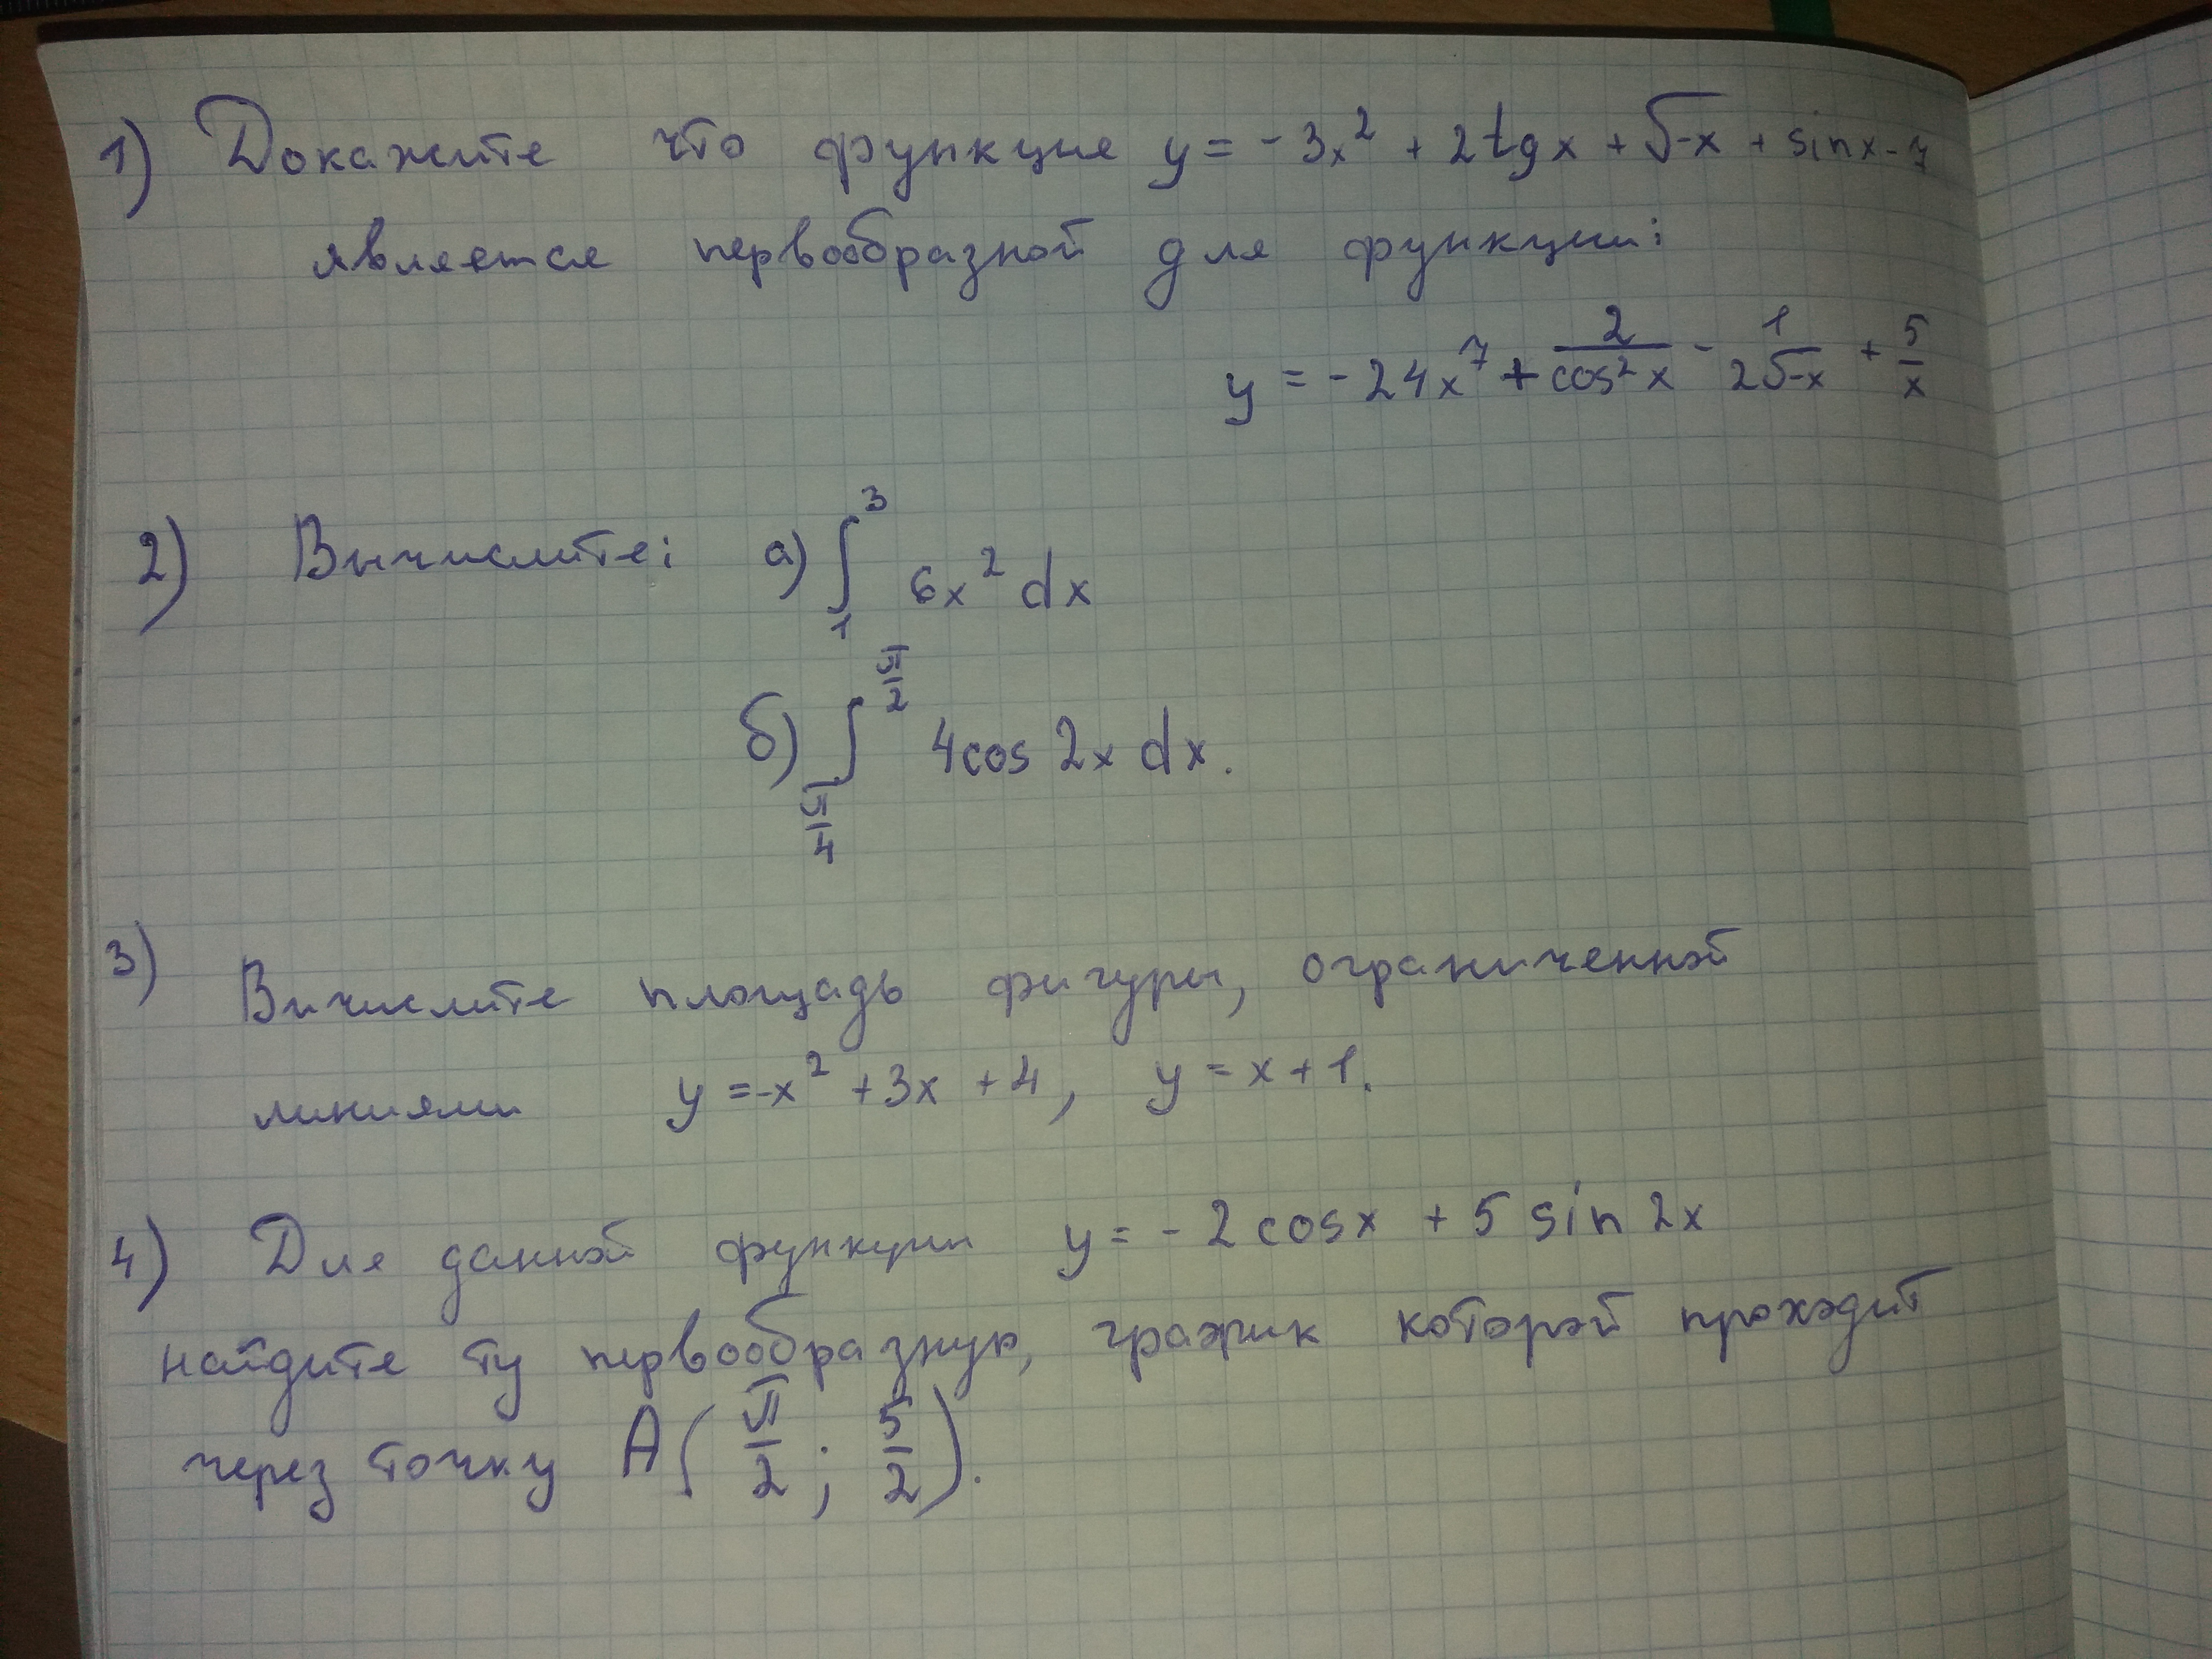 1) Докажите что функция y = -3x² + 2tgx + √-x + sinx - 7
является первообразной для функции:
y = -24x⁷ + 2/cos²x - 1/2√-x + 5/x
2) Вычислите: а) ∫₁³ 6x² dx
б) ∫_{π/4}^{π/2} 4cos 2x dx.
3) Вычислите площадь фигуры, ограниченной
линиями y = -x² + 3x + 4, y = x + 1.
4) Для данной функции y = -2cosx + 5 sin 2x
найдите ту первообразную, график которой проходит
через точку A(π/2; 5/2).